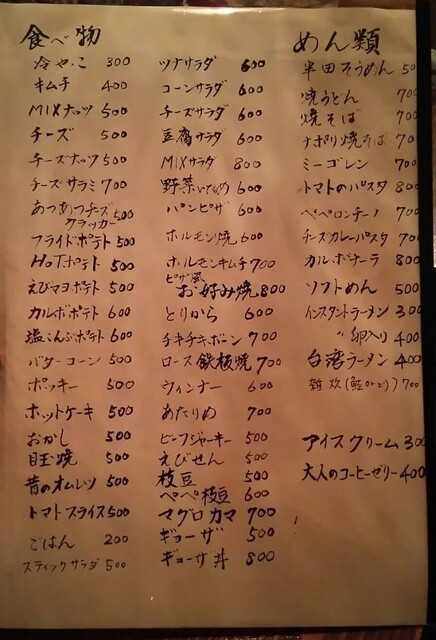 食べ物
冷やっこ 300
キムチ 400
MIXナッツ 500
チーズ 500
チーズナッツ 500
チーズサラミ 700
あつあつチーズ
クラッカー 500
フライドポテト 500
HOTポテト 500
えびマヨポテト 500
カルボポテト 600
塩こんぶポテト 600
バターコーン 500
ポッキー 500
ホットケーキ 500
おかし 500
目玉焼 500
昔のオムレツ 500
トマトスライス 500
ごはん 200
スティックサラダ 500
ツナサラダ 600
コーンサラダ 600
チーズサラダ 600
豆腐サラダ 600
MIXサラダ 800
野菜いため 600
パンピザ 600
ホルモン焼 600
ホルモンキムチ 700
ピザ風
お好み焼 800
とりから 600
チキチキボーン 700
ロース鉄板焼 700
ウィンナー 600
あたりめ 700
ビーフジャーキー 500
えびせん 500
枝豆 500
ペペ枝豆 600
マグロカマ 700
ギョーザ 500
ギョーザ丼 800
めん類
半田そうめん 50
焼うどん 700
焼そば 700
ナポリ焼そば 700
ミーゴレン 700
トマトのパスタ 800
ペペロンチーノ 700
チーズカレーパスタ 700
カルボナーラ 800
ソフトめん 500
インスタントラーメン 300
〃 卵入り 400
台湾ラーメン 400
雑炊(鮭 とり) 700
アイスクリーム 300
大人のコーヒーゼリー 400